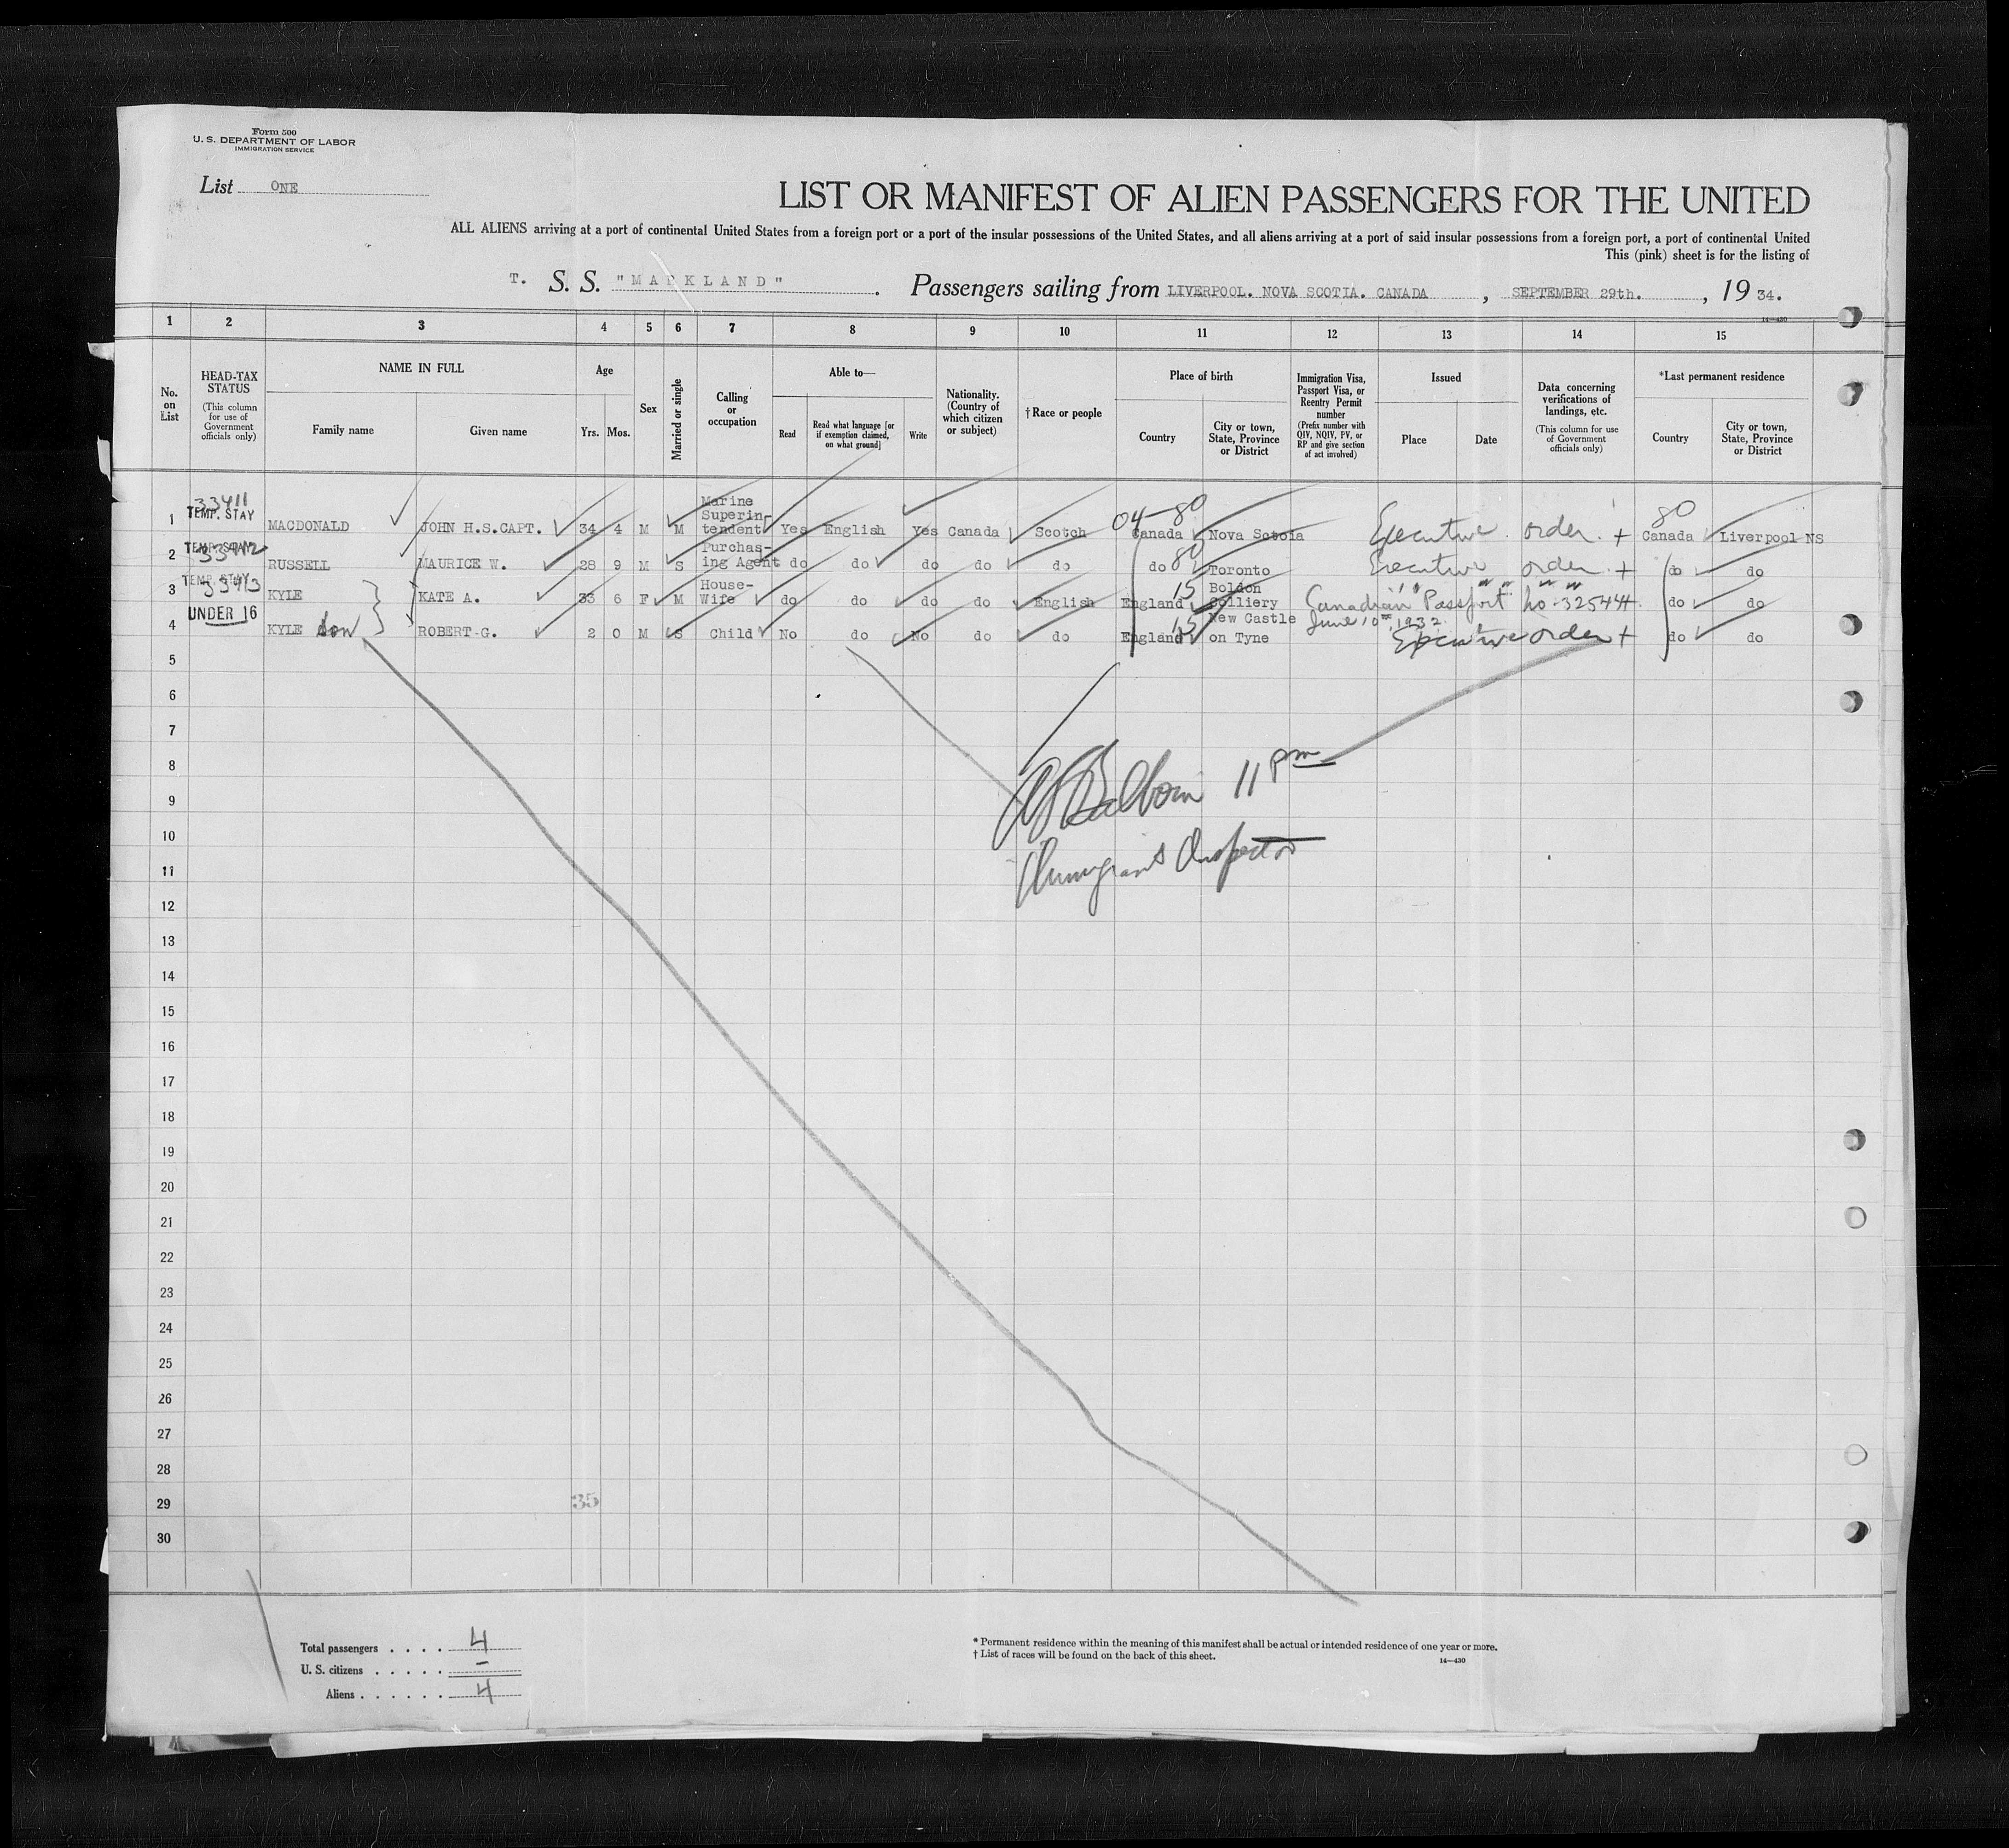 Form 500
U. S. DEPARTMENT OF LABOR
IMMIGRATION SERVICE
List ONE
LIST OR MANIFEST OF ALIEN PASSENGERS FOR THE UNITED
ALL ALIENS arriving at a port of continental United States from a foreign port or a port of the insular possessions of the United States, and all aliens arriving at a port of said insular possessions from a foreign port, a port of continental United
This (pink) sheet is for the listing of
T. S. S. "MARKLAND". Passengers sailing from LIVERPOOL. NOVA SCOTIA. CANADA, SEPTEMBER 29th., 19 34.
14—430
1 2 3 4 5 6 7 8 9 10 11 12 13 14 15
No. on List
HEAD-TAX STATUS (This column for use of Government officials only)
NAME IN FULL
Family name
Given name
Age
Yrs. Mos.
Sex
Married or single
Calling or occupation
Able to—
Read
Read what language [or if exemption claimed, on what ground]
Write
Nationality. (Country of which citizen or subject)
† Race or people
Place of birth
Country
City or town, State, Province or District
Immigration Visa, Passport Visa, or Reentry Permit number (Prefix number with QIV, NQIV, PV, or RP and give section of act involved)
Issued
Place
Date
Data concerning verifications of landings, etc. (This column for use of Government officials only)
*Last permanent residence
Country
City or town, State, Province or District
1 33411 TEMP. STAY MACDONALD JOHN H.S.CAPT. 34 4 M M Marine Superin-tendent Yes English Yes Canada Scotch 04-80 Canada Nova Sotoia Executive order + 80 Canada Liverpool NS
2 TEMP. STAY 33412 RUSSELL MAURICE W. 28 9 M S Purchas-ing Agent do do do do do do 80 Toronto Executive order + do do
3 TEMP. STAY 33413 KYLE KATE A. 33 6 F M House-Wife do do do do English England 15 Boldon Colliery Canadian Passport no. 32544 + June 10th, 1932 do do
4 UNDER 16 KYLE son ROBERT G. 2 0 M S Child No do No do do England 15 New Castle on Tyne Executive order + do do
5
6
7
8
9
10
11
12
13
14
15
16
17
18
19
20
21
22
23
24
25
26
27
28
29
30
11 pm
Immigrant Inspector
35
Total passengers . . . . 4
U. S. citizens . . . . . -
Aliens . . . . . . 4
* Permanent residence within the meaning of this manifest shall be actual or intended residence of one year or more.
† List of races will be found on the back of this sheet.
14—430